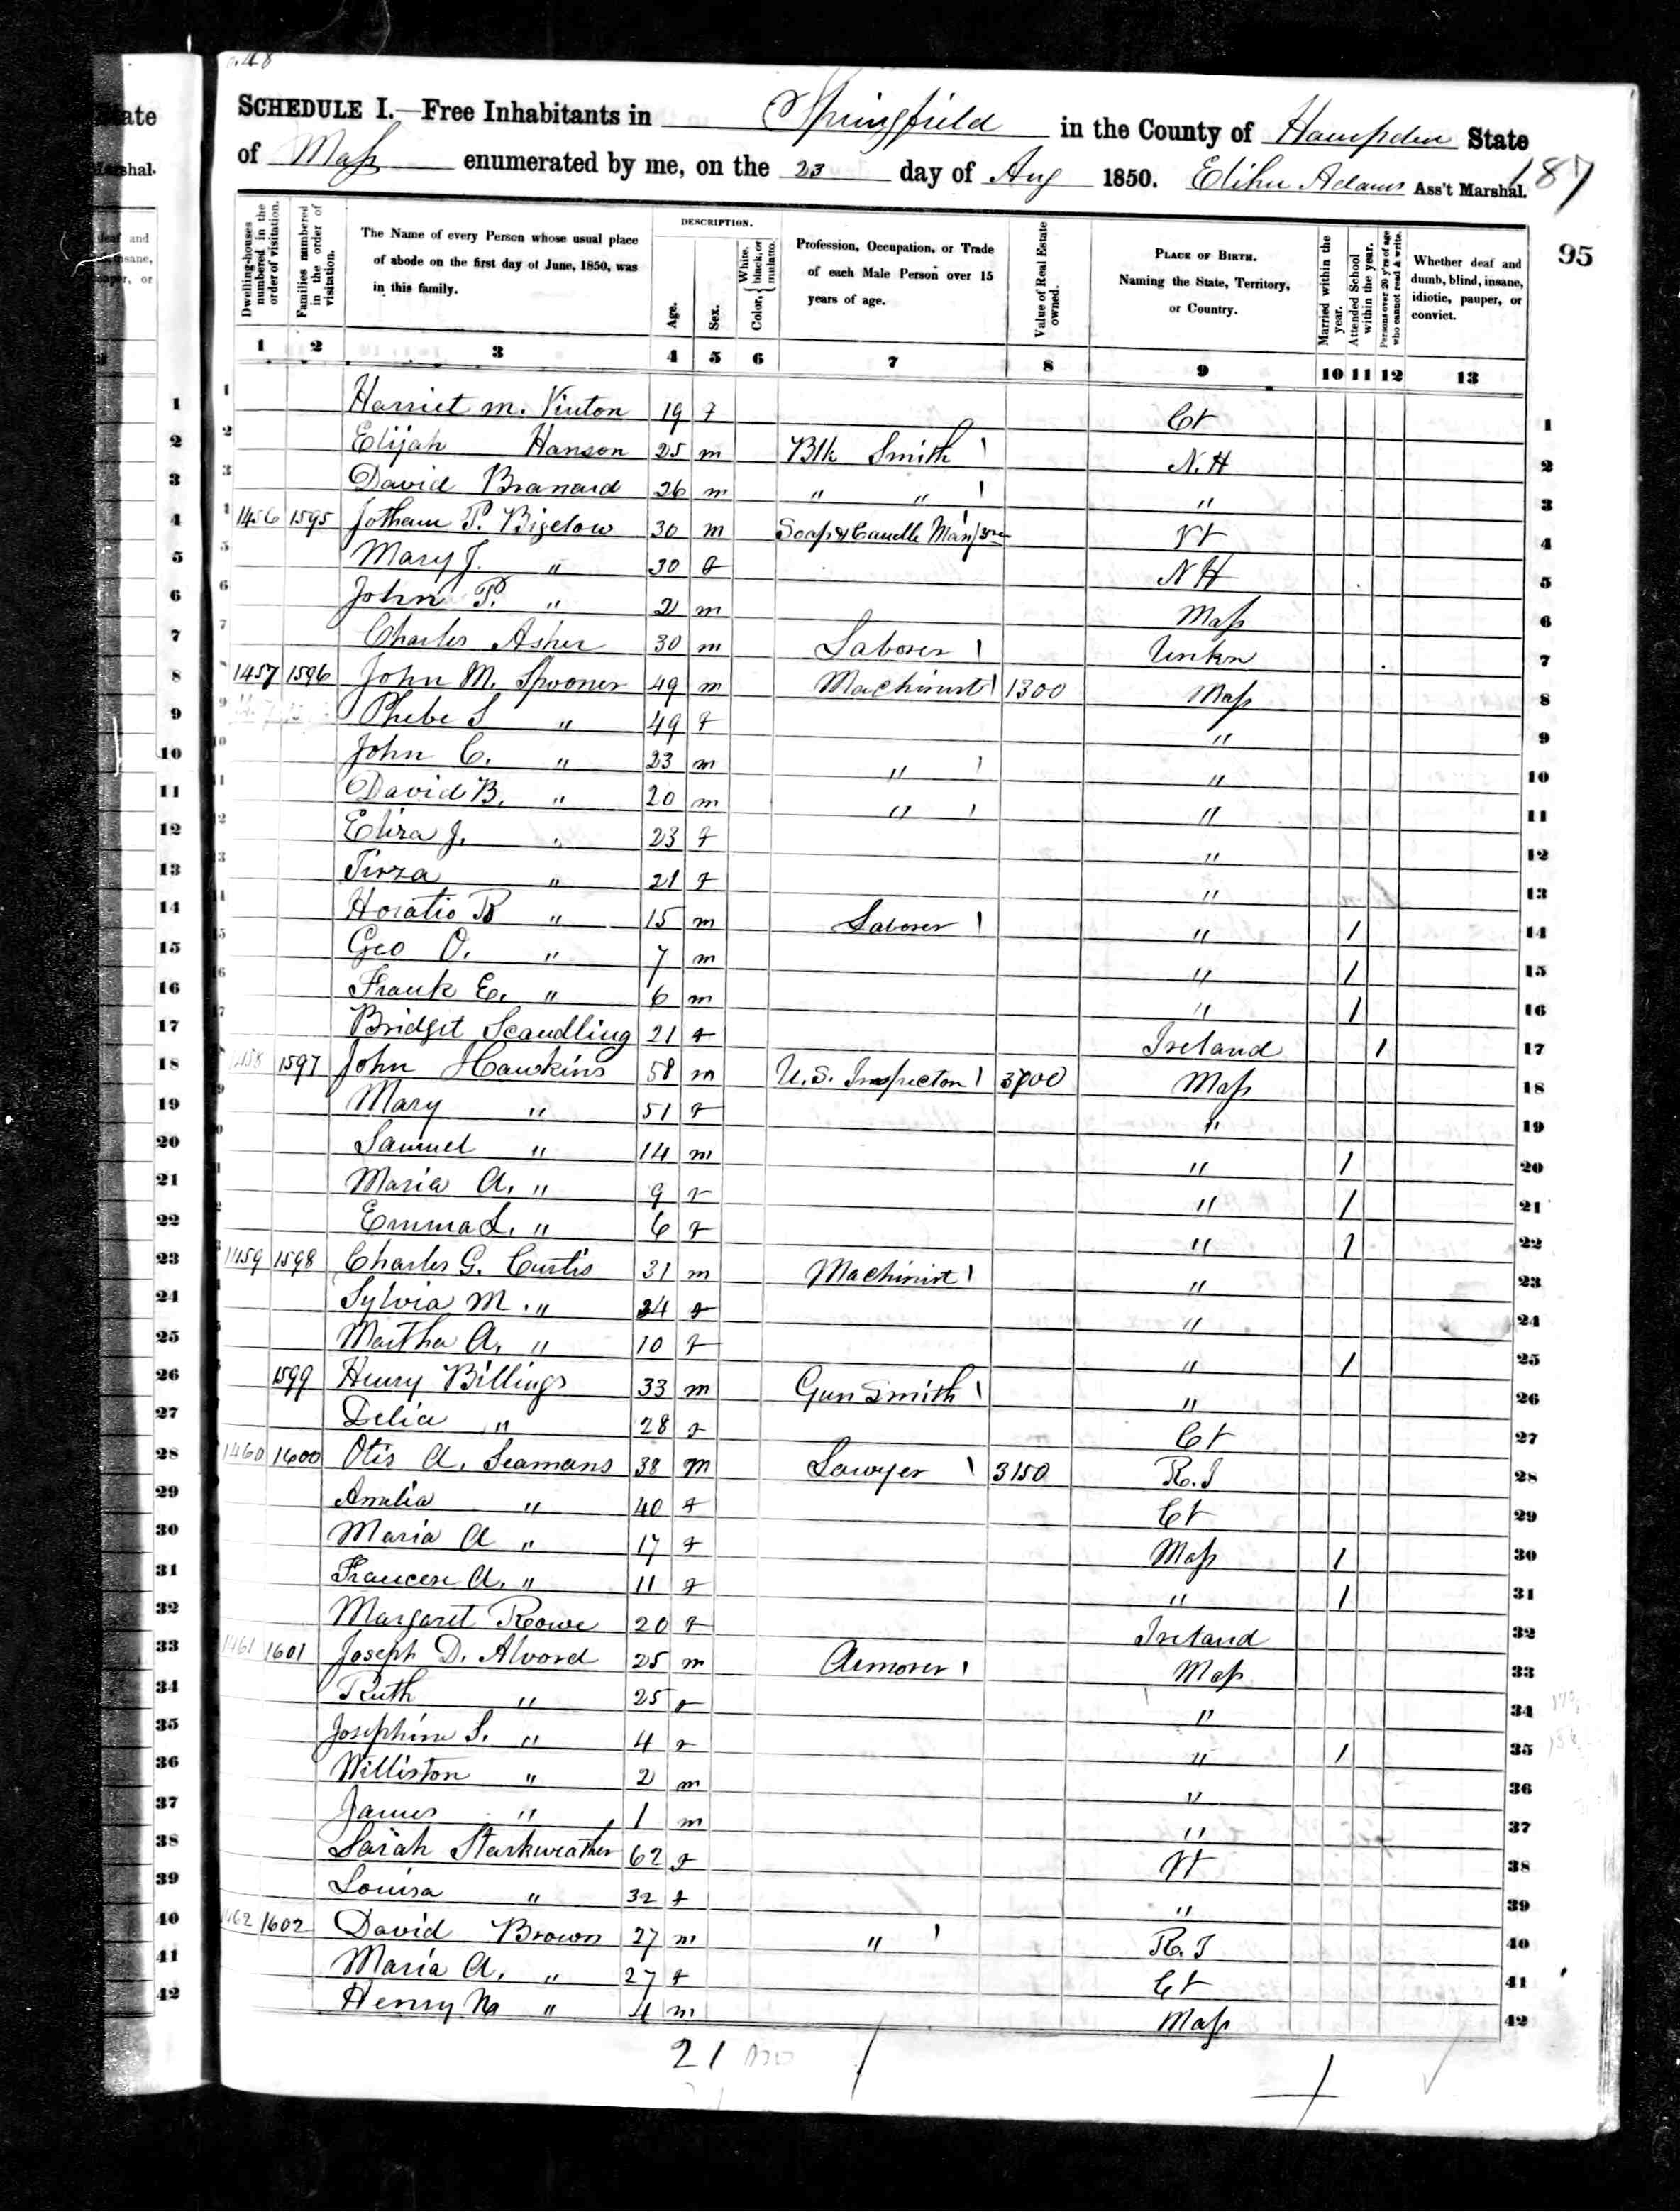 SCHEDULE I.—Free Inhabitants in Springfield in the County of Hampden State
of Mass enumerated by me, on the 23 day of Aug 1850. Elihu Adams Ass't Marshal.
187
95
DESCRIPTION.
Dwelling-houses numbered in the order of visitation.
Families numbered in the order of visitation.
The Name of every Person whose usual place of abode on the first day of June, 1850, was in this family.
Age.
Sex.
Color, { White, black, or mulatto.
Profession, Occupation, or Trade of each Male Person over 15 years of age.
Value of Real Estate owned.
PLACE OF BIRTH. Naming the State, Territory, or Country.
Married within the year.
Attended School within the year.
Persons over 20 y'rs of age who cannot read & write.
Whether deaf and dumb, blind, insane, idiotic, pauper, or convict.
1 2 3 4 5 6 7 8 9 10 11 12 13
1 Harriet M. Vinton 19 f Ct 1
2 Elijah Hanson 25 m Blk Smith 1 N.H 2
3 David Branard 26 m " " 1 " 3
4 1456 1595 Jotham P. Bigelow 30 m Soap & Candle Man 1 Vt 4
5 Mary J. " 30 f N H 5
6 John P. " 2 m Mass 6
7 Charles Asher 30 m Laborer 1 Unkn 7
8 1457 1596 John M. Spooner 49 m Machinist 1 1300 Mass 8
9 Phebe S " 49 f " 9
10 John C. " 23 m " 1 " 10
11 David B. " 20 m " 1 " 11
12 Eliza J. " 23 f " 12
13 Tirza " 21 f " 13
14 Horatio R " 15 m Laborer 1 " 1 14
15 Geo O. " 7 m " 1 15
16 Frank E. " 6 m " 1 16
17 Bridget Scandling 21 f Ireland 1 17
18 1458 1597 John Hawkins 58 m U.S. Inspector 1 3700 Mass 18
19 Mary " 51 f " 19
20 Samuel " 14 m " 1 20
21 Maria A. " 9 f " 1 21
22 Emma L. " 6 f " 1 22
23 1459 1598 Charles G. Curtis 31 m Machinist 1 " 23
24 Sylvia M. " 24 f " 24
25 Martha A. " 10 f " 1 25
26 1599 Henry Billings 33 m Gun Smith 1 " 26
27 Delia " 28 f Ct 27
28 1460 1600 Otis A. Seamans 38 m Lawyer 1 3150 R.I 28
29 Amelia " 40 f Ct 29
30 Maria A " 17 f Mass 1 30
31 Francese A. " 11 f " 1 31
32 Margaret Rowe 20 f Ireland 32
33 1461 1601 Joseph D. Alvord 25 m Armorer 1 Mass 33
34 Ruth " 25 f " 34
35 Josephine S. " 4 f " 1 35
36 Williston " 2 m " 36
37 James " 1 m " 37
38 Sarah Starkweather 62 f Vt 38
39 Louisa " 32 f " 39
40 1462 1602 David Brown 27 m " 1 R.I 40
41 Maria A. " 27 f Ct 41
42 Henry " 4 m Mass 42
21